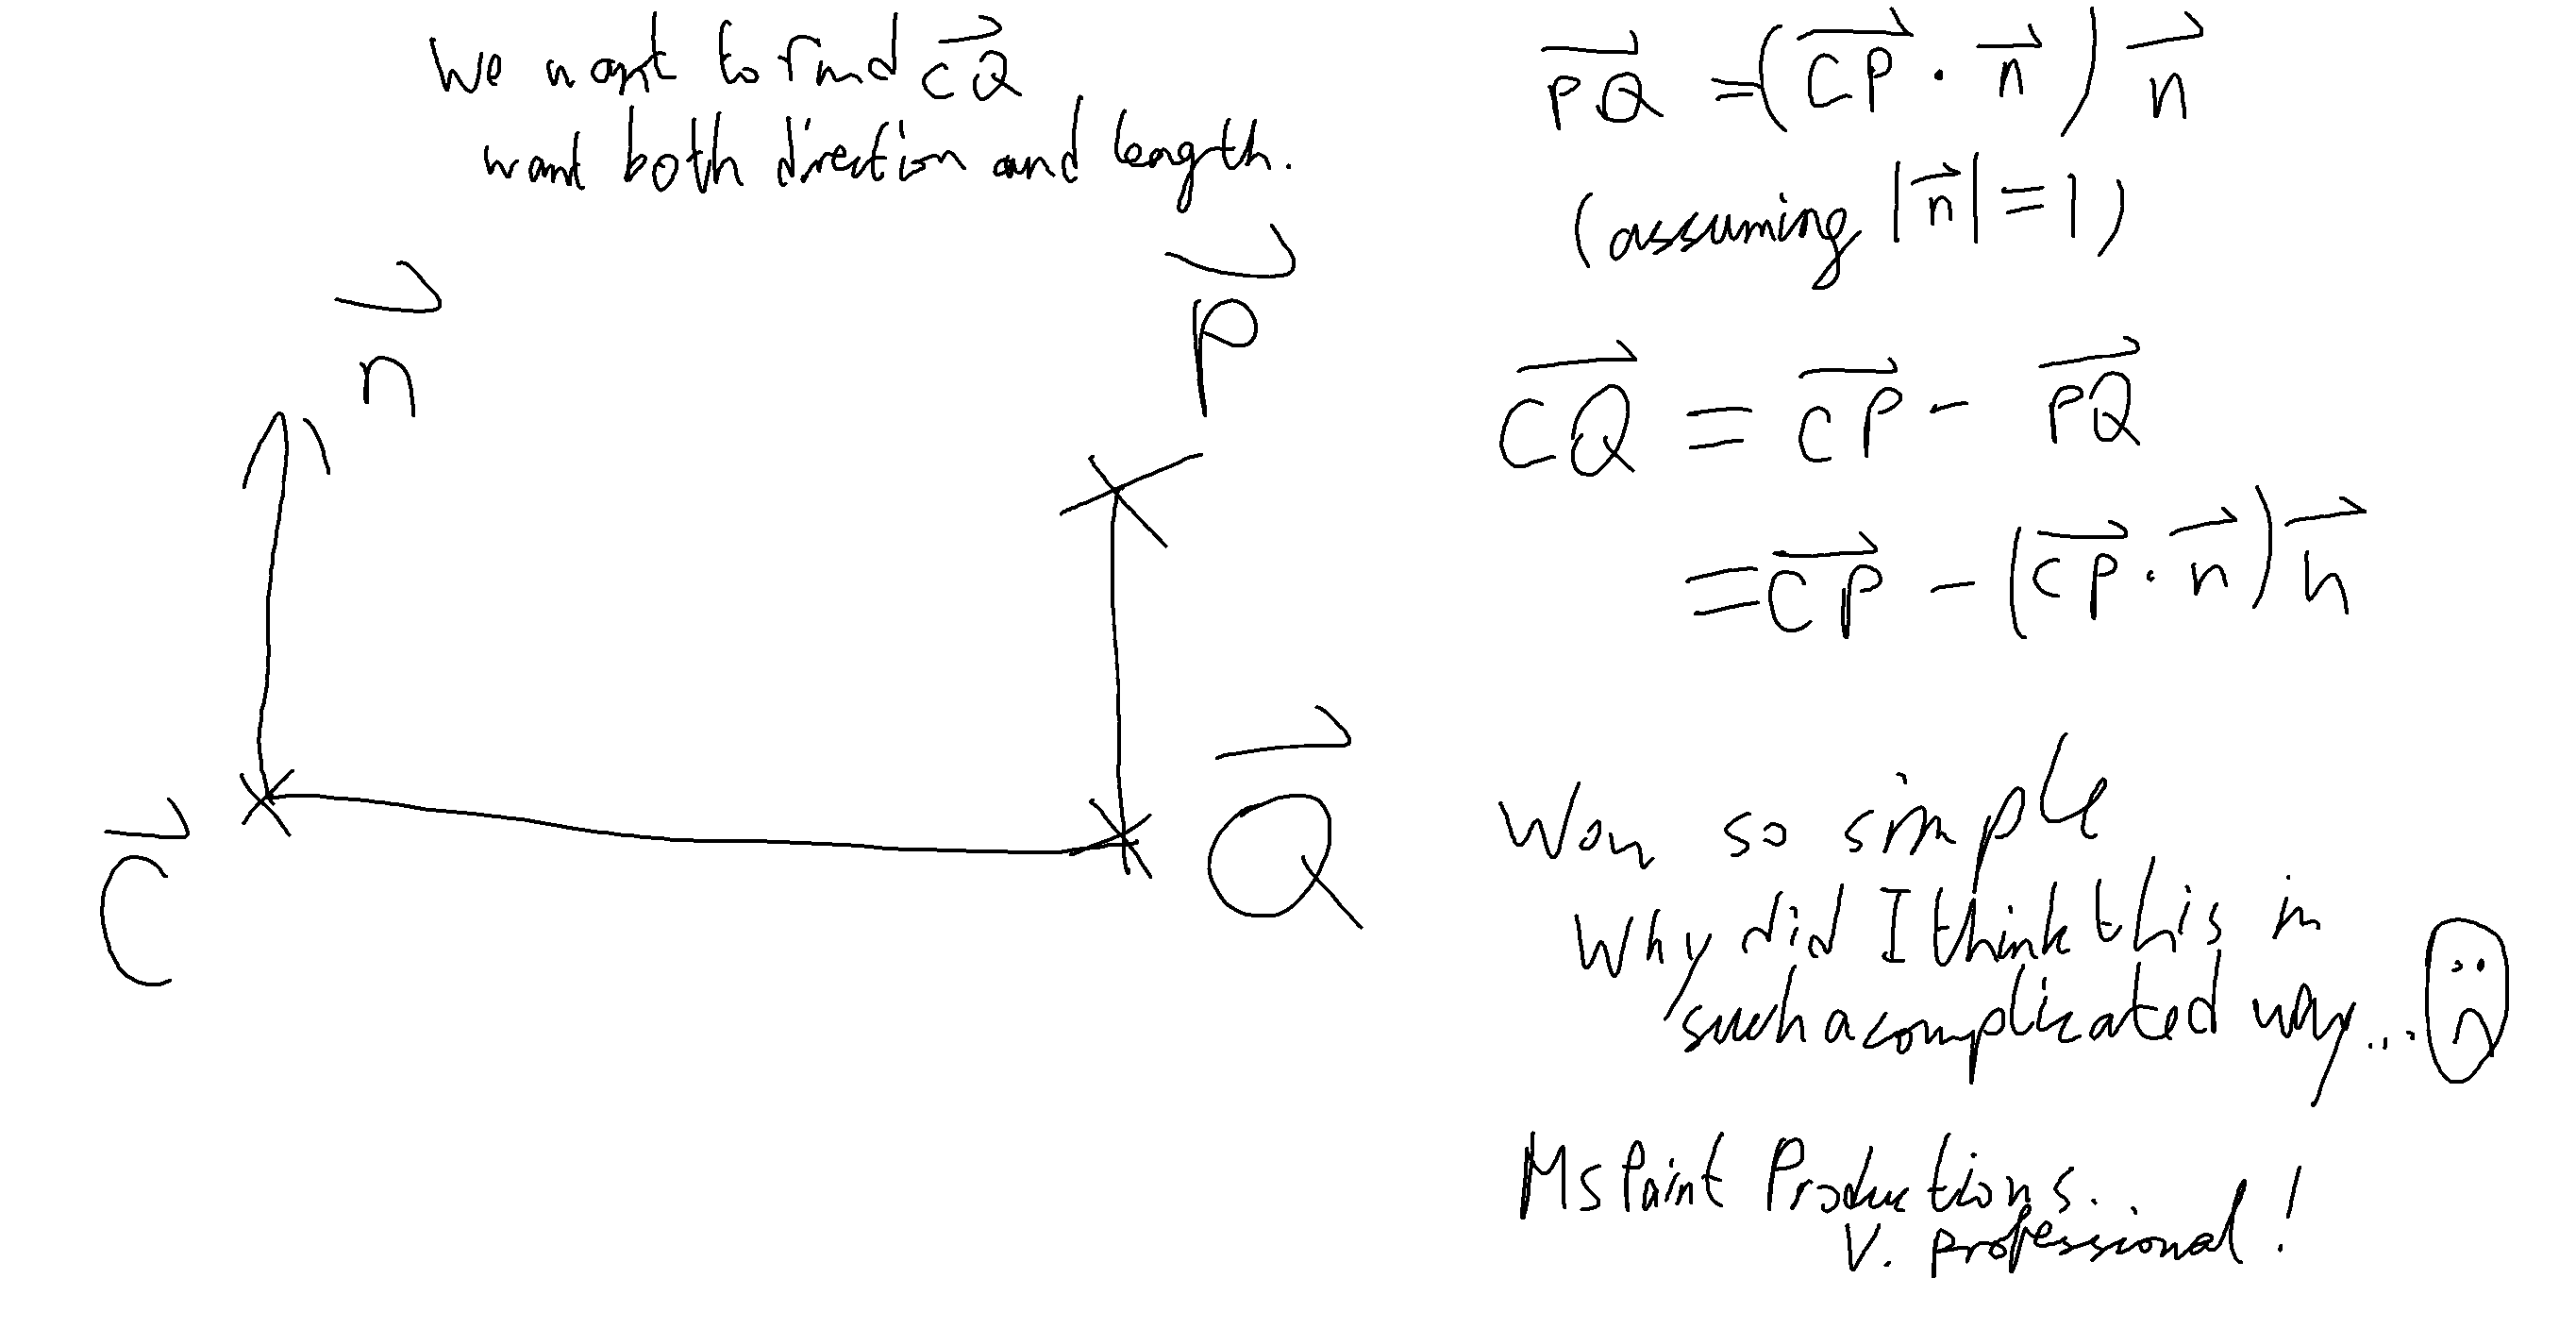 We want to find \vec{CQ}
want both direction and length.
\vec{n}
\vec{P}
\vec{C}
\vec{Q}
\vec{PQ} = (\vec{CP} · \vec{n}) \vec{n}
(assuming |\vec{n}| = 1)
\vec{CQ} = \vec{CP} - \vec{PQ}
= \vec{CP} - (\vec{CP} · \vec{n}) \vec{n}
Wow so simple
Why did I think this in
such a complicated way...
MS Paint Productions.
V. professional!